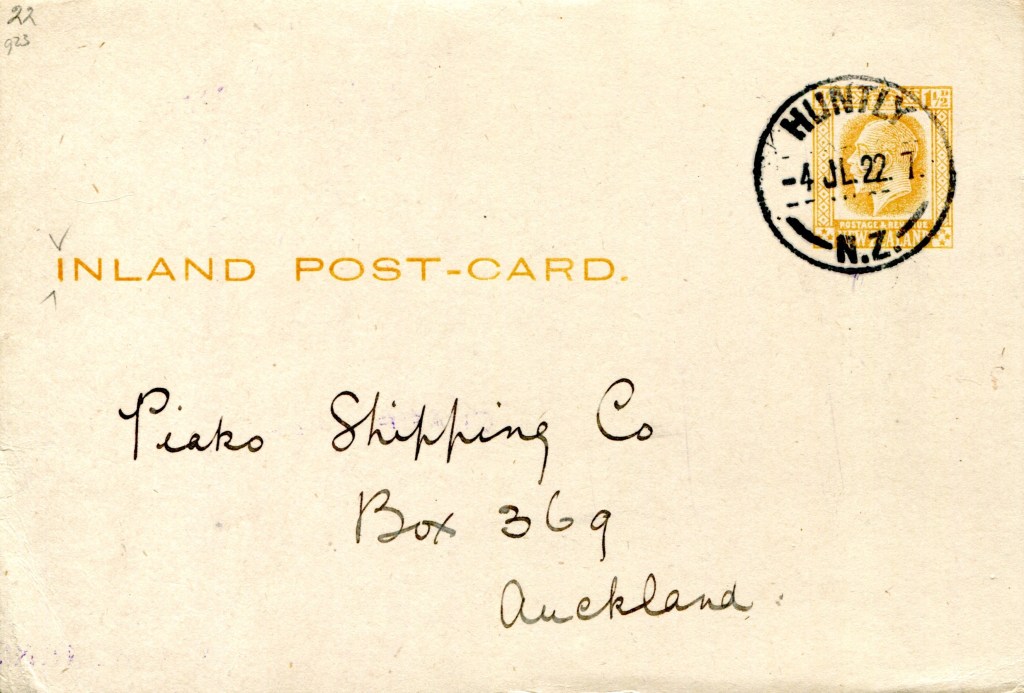 22
923
1½D
HUNTLY
-4 JL.22. 7.
POSTAGE & REVENUE
NEW ZEALAND
N.Z.
INLAND POST-CARD.
Piako Shipping Co
Box 369
Auckland.